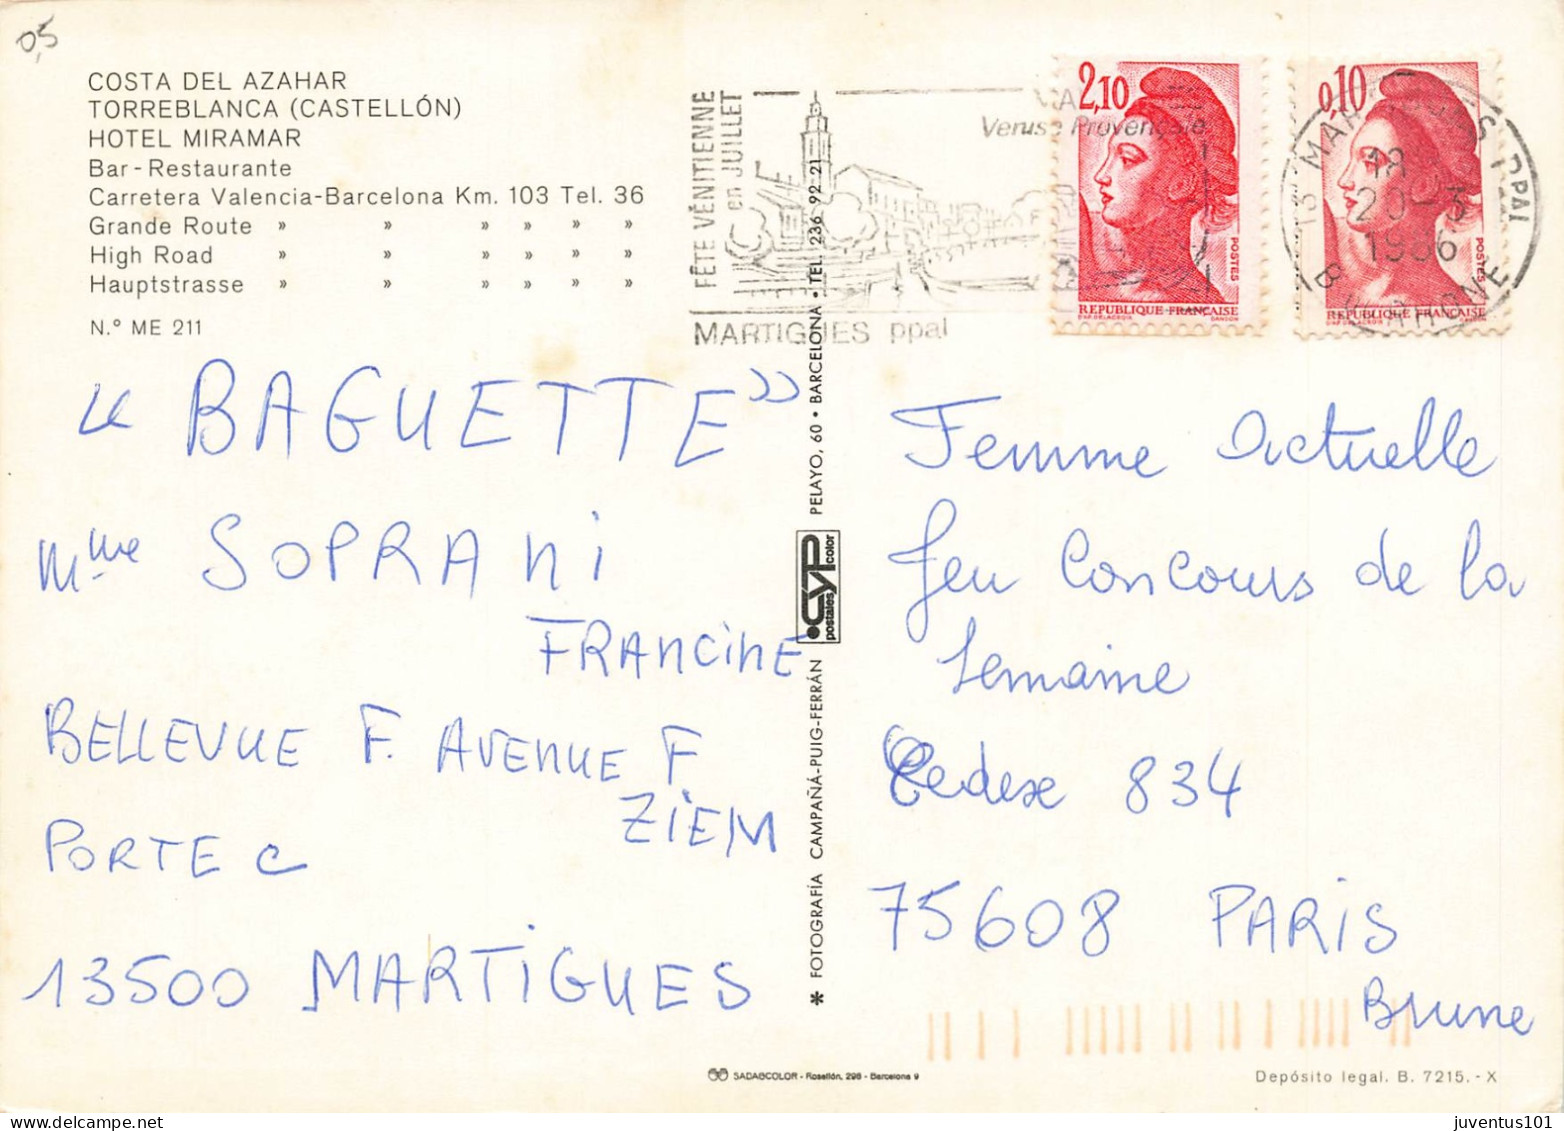 0,5
COSTA DEL AZAHAR
TORREBLANCA (CASTELLÓN)
HOTEL MIRAMAR
Bar - Restaurante
Carretera Valencia-Barcelona Km. 103 Tel. 36
Grande Route » » » » » »
High Road » » » » » »
Hauptstrasse » » » » » »
N.° ME 211
FÊTE VÉNITIENNE
en JUILLET
Venise Provençale
MARTIGUES ppal
2,10
POSTES
REPUBLIQUE FRANÇAISE
D'AP. DELACROIX GANDON
0,10
POSTES
REPUBLIQUE FRANÇAISE
D'AP. DELACROIX GANDON
13 MARTIGUES PPAL
18
20-3
1986
B. DU RHONE
« BAGUETTE »
Mme SOPRANI
FRANCINE
BELLEVUE F. AVENUE F
ZIEM
PORTE C
13500 MARTIGUES
* FOTOGRAFÍA CAMPAÑÁ-PUIG-FERRÁN
CYP
postales color
PELAYO, 60 • BARCELONA • TEL. 236 92 21
Femme Actuelle
Jeu Concours de la
Semaine
Cedex 834
75608 PARIS
Brune
SADAGCOLOR - Rosellón, 298 - Barcelona 9
Depósito legal. B. 7215. - X
juventus101